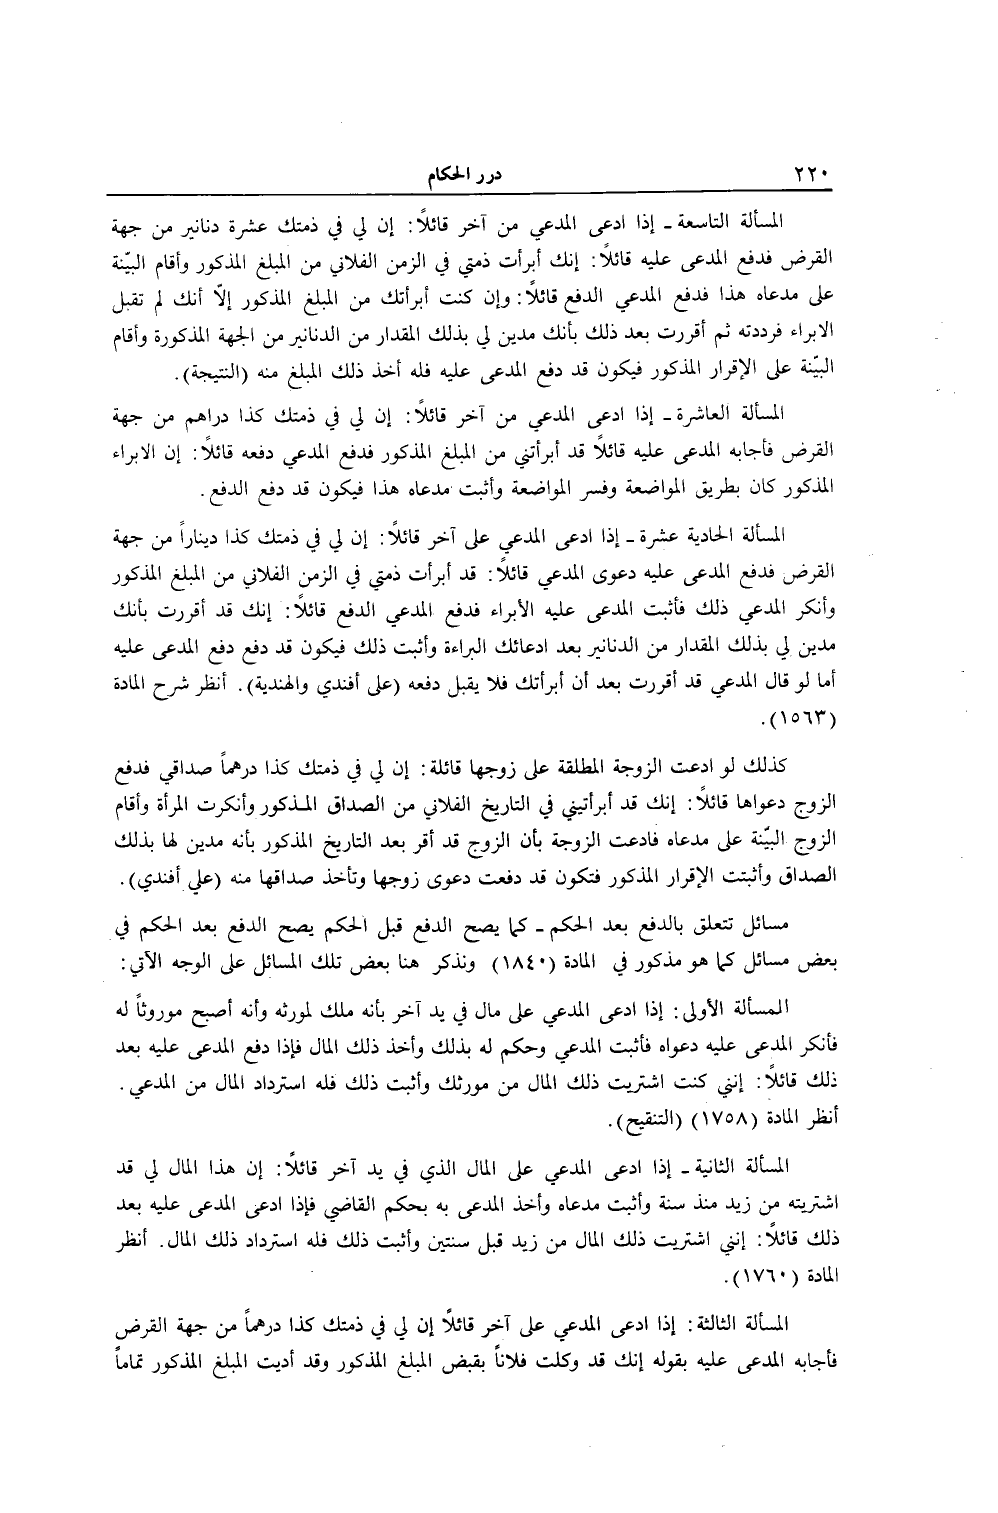 ٢٢٠
درر الحكام
المسألة التاسعة ـ إذا ادعى المدعي من آخر قائلاً: إن لي في ذمتك عشرة دنانير من جهة
القرض فدفع المدعى عليه قائلاً: إنك أبرأت ذمتي في الزمن الفلاني من المبلغ المذكور وأقام البيّنة
على مدعاه هذا فدفع المدعي الدفع قائلاً: وإن كنت أبرأتك من المبلغ المذكور إلاّ أنك لم تقبل
الابراء فرددته ثم أقررت بعد ذلك بأنك مدين لي بذلك المقدار من الدنانير من الجهة المذكورة وأقام
البيّنة على الإقرار المذكور فيكون قد دفع المدعى عليه فله أخذ ذلك المبلغ منه (النتيجة).
المسألة العاشرة ـ إذا ادعى المدعي من آخر قائلاً: إن لي في ذمتك كذا دراهم من جهة
القرض فأجابه المدعى عليه قائلاً قد أبرأتني من المبلغ المذكور فدفع المدعي دفعه قائلاً: إن الابراء
المذكور كان بطريق المواضعة وفسر المواضعة وأثبت مدعاه هذا فيكون قد دفع الدفع.
المسألة الحادية عشرة ـ إذا ادعى المدعي على آخر قائلاً: إن لي في ذمتك كذا ديناراً من جهة
القرض فدفع المدعى عليه دعوى المدعي قائلاً: قد أبرأت ذمتي في الزمن الفلاني من المبلغ المذكور
وأنكر المدعي ذلك فأثبت المدعى عليه الأبراء فدفع المدعي الدفع قائلاً: إنك قد أقررت بأنك
مدين لي بذلك المقدار من الدنانير بعد ادعائك البراءة وأثبت ذلك فيكون قد دفع دفع المدعى عليه
أما لو قال المدعي قد أقررت بعد أن أبرأتك فلا يقبل دفعه (على أفندي والهندية). أنظر شرح المادة
(١٥٦٣).
كذلك لو ادعت الزوجة المطلقة على زوجها قائلة: إن لي في ذمتك كذا درهماً صداقي فدفع
الزوج دعواها قائلاً: إنك قد أبرأتيني في التاريخ الفلاني من الصداق المذكور وأنكرت المرأة وأقام
الزوج البيّنة على مدعاه فادعت الزوجة بأن الزوج قد أقر بعد التاريخ المذكور بأنه مدين لها بذلك
الصداق وأثبتت الإقرار المذكور فتكون قد دفعت دعوى زوجها وتأخذ صداقها منه (علي أفندي).
مسائل تتعلق بالدفع بعد الحكم ـ كما يصح الدفع قبل الحكم يصح الدفع بعد الحكم في
بعض مسائل كما هو مذكور في المادة (١٨٤٠) ونذكر هنا بعض تلك المسائل على الوجه الآتي:
المسألة الأولى: إذا ادعى المدعي على مال في يد آخر بأنه ملك لمورثه وأنه أصبح موروثاً له
فأنكر المدعى عليه دعواه فأثبت المدعي وحكم له بذلك وأخذ ذلك المال فإذا دفع المدعى عليه بعد
ذلك قائلاً: إنني كنت اشتريت ذلك المال من مورثك وأثبت ذلك فله استرداد المال من المدعي.
أنظر المادة (١٧٥٨) (التنقيح).
المسألة الثانية ـ إذا ادعى المدعي على المال الذي في يد آخر قائلاً: إن هذا المال لي قد
اشتريته من زيد منذ سنة وأثبت مدعاه وأخذ المدعى به بحكم القاضي فإذا ادعى المدعى عليه بعد
ذلك قائلاً: إنني اشتريت ذلك المال من زيد قبل سنتين وأثبت ذلك فله استرداد ذلك المال. أنظر
المادة (١٧٦٠).
المسألة الثالثة: إذا ادعى المدعي على آخر قائلاً إن لي في ذمتك كذا درهماً من جهة القرض
فأجابه المدعى عليه بقوله إنك قد وكلت فلاناً بقبض المبلغ المذكور وقد أديت المبلغ المذكور تماماً